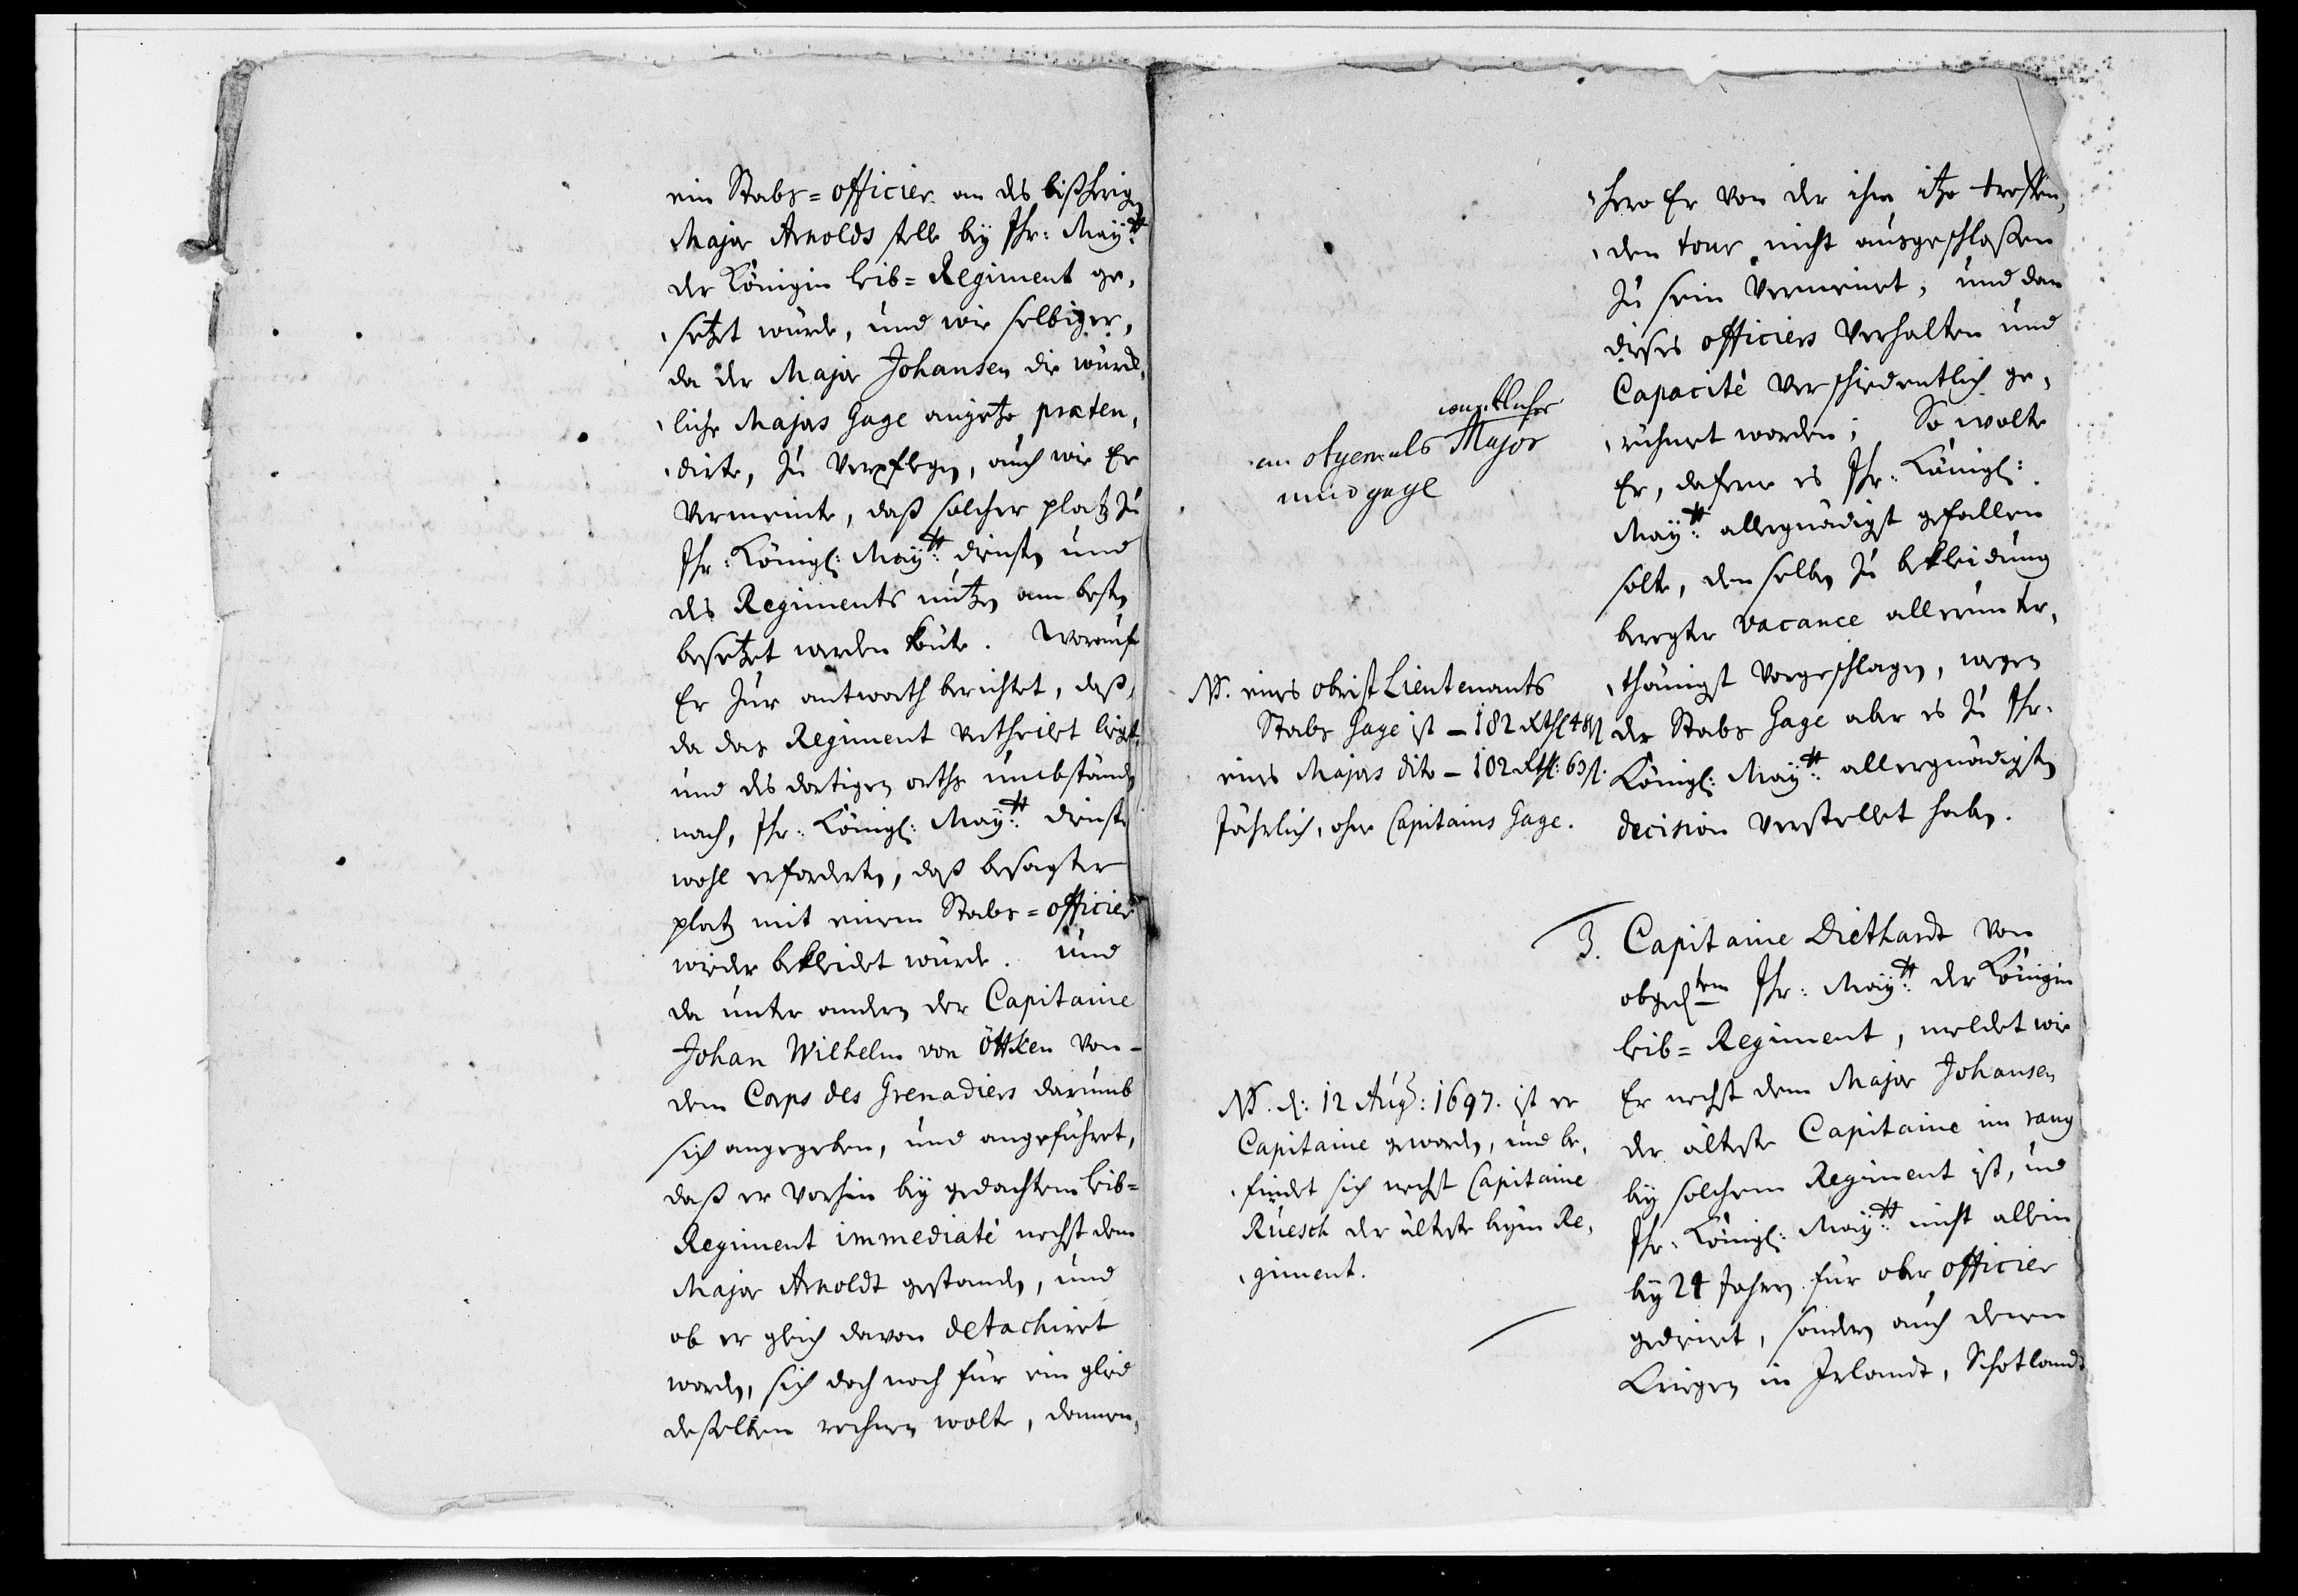 ein Stabs=officier an des bißherigen
Major Arnolds stelle bey Ihr: Mayt:
der Königin leib=Regiment ge,
,setzt würde, und wie selbiger,
da der Major Johansen die würck,
,liche Majors Gage anjetzo præten,
,dirte, zu verpflegen, auch wie Er
vermeinte, daß solcher platz zu
Ihr: Königl: Maytt: diensten und
des Regiments nutzen am besten
besetzet werden könte. Worauf
Er zur antworth berichtet, daß,
da das Regiment vertheilet liegt,
und des dortigen orths umbständen
nach, Ihr: Königl: Maytt: dienste
wohl erforderten, daß besagter
platz mit einem Stabs=officier
wieder bekleidet würde. Und
da unter andern der Capitaine
Johan Wilhelm von Öttken von
dem Corps des Grenadiers darumb
sich angegeben, und angeführet,
daß er vorhin bey gedachtem leib=
Regiment immediaté nechst dem
Major Arnoldt gestanden, und
ob er gleich davon detachiret
worden, sich doch noch für ein glied
deßelben rechnen wolte, dannen,
,hero Er von der ihm itzo treffen,
,den tour nicht ausgeschloßen
zu sein vermeinet, und dan
dieses officiers verhalten und
Capacité verschiedentlich ge,
,rühmet worden; So wolte
Er, dafern es Ihr: Königl:
Maytt: allergnädigst gefallen
solte, denselben zu bekleidung
beregter vacance allerunter,
,thänigst vorgeschlagen, wegen
der Stabs Gage aber es zu Ihr:
Königl: Maytt: allergnädigsten
decision verstellet haben.
würklicher
an Major
und gage
NB. eines obrist Lieutenants
Stabs Gage ist – 182 Rthl 48 ß
eines Majors dito – 102 Rthl: 63 ß.
Jährlich, ohne Capitains Gage.
3. Capitaine Diethardt von
obgedtem Ihr: Maytt: der Königin
leib=Regiment, meldet wie
Er nechst dem Major Johansen
der älteste Capitaine im rang
bey solchem Regiment ist, und
Ihr: Königl: Maytt: nicht allein
bey 24 Jahren für ober officier
gedienet, sondern auch denen
Kriegen in Irlandt, Schotlandt
NB. d: 12 Aug: 1697. ist er
Capitaine geworden, und be,
,findet sich nechst Capitaine
Rüesch der älteste beym Re,
,giment.